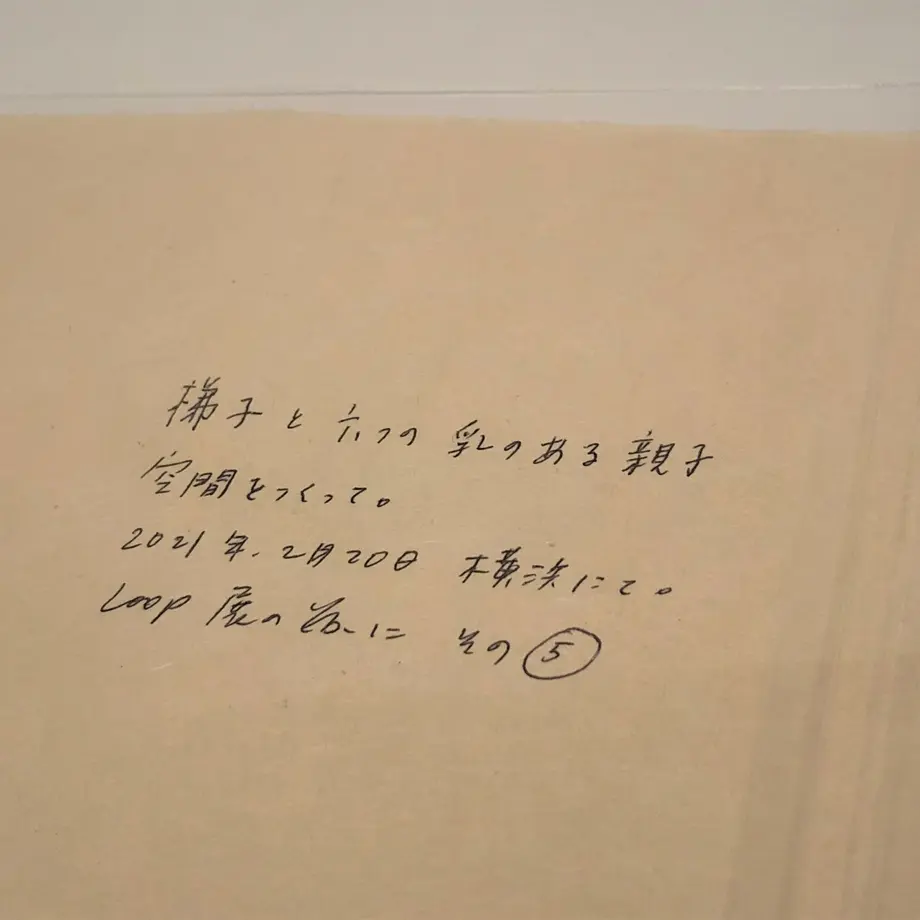 梯子と六つの乳のある親子
空間をつくって。
2021年.2月20日 横浜にて。
Loop 展の為に その⑤